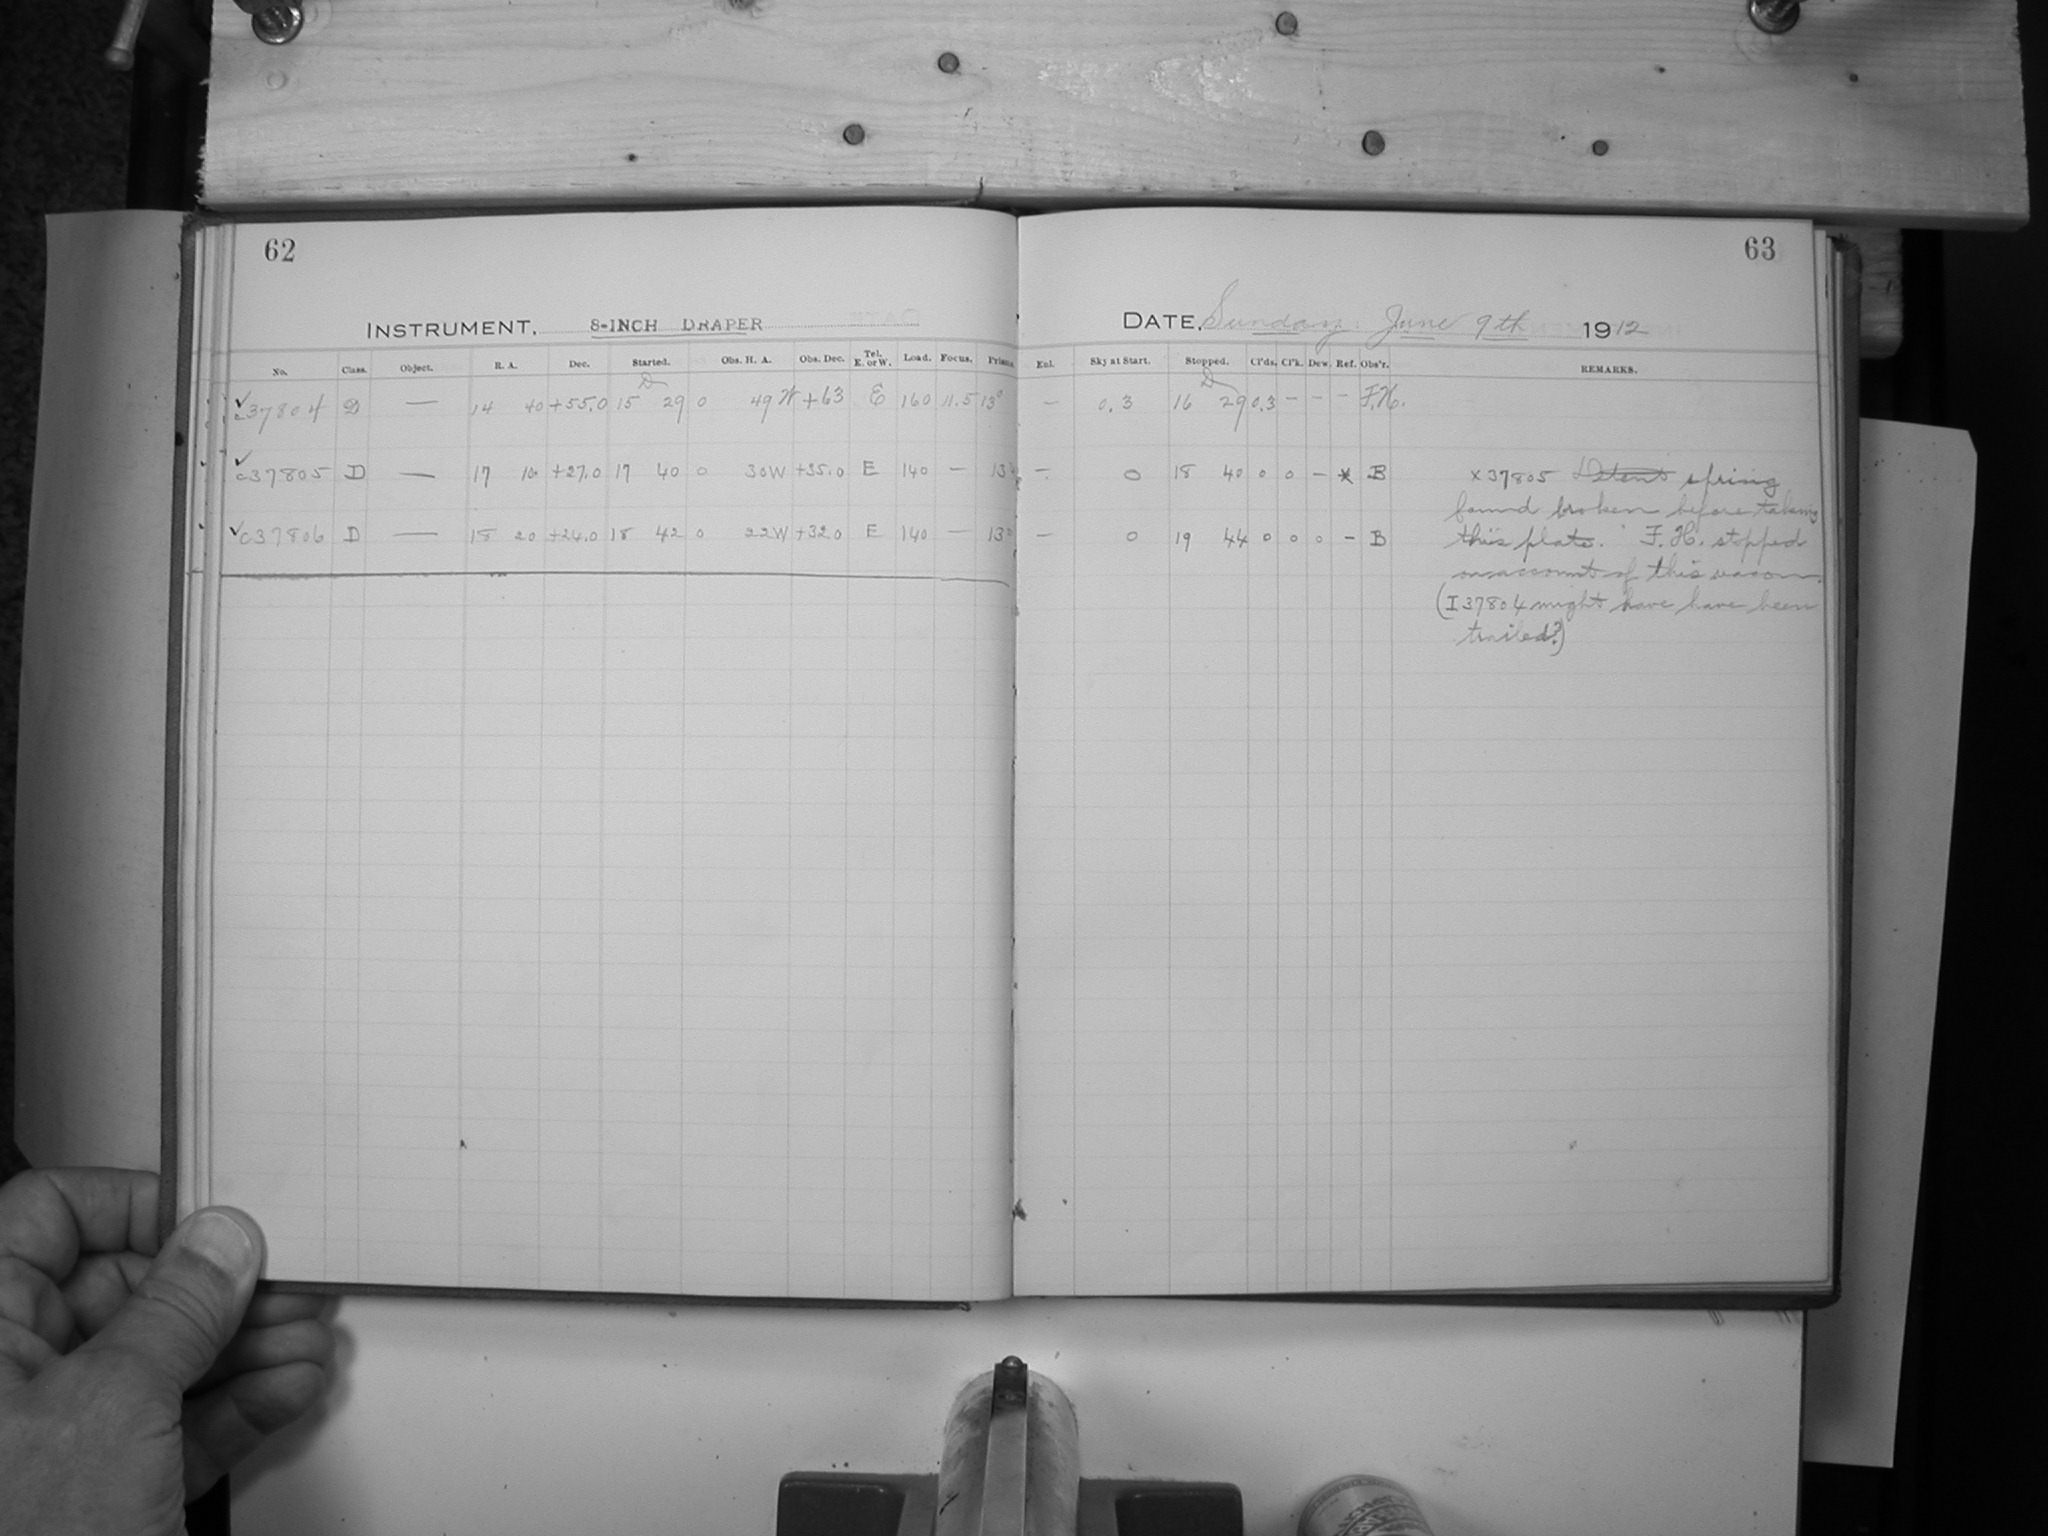 62
INSTRUMENT. 8-INCH DRAPER
No. Class. Object. R. A. Dec. Started. Obs. H. A. Obs. Dec. Tel. E. or W. Load. Focus. Prism.
D
c37804 D — 14 40 +55.0 15 29 0 49 W +63 E 160 11.5 13°
c37805 D — 17 10 +27.0 17 40 0 30W +35.0 E 140 — 13°
c37806 D — 18 20 +24.0 18 42 0 22W +32.0 E 140 — 13°
63
DATE. Sunday. June 9th 1912
Enl. Sky at Start. Stopped. Cl'ds. Cl'k. Dew. Ref. Obs'r. REMARKS.
D
— 0.3 16 29 0.3 - - - F.H.
— 0 18 40 0 0 - * B
— 0 19 44 0 0 0 - B
x37805 Detent spring
found broken before taking
this plate. F. H. stopped
on account of this reason.
(I 37804 might have have been
trailed?)